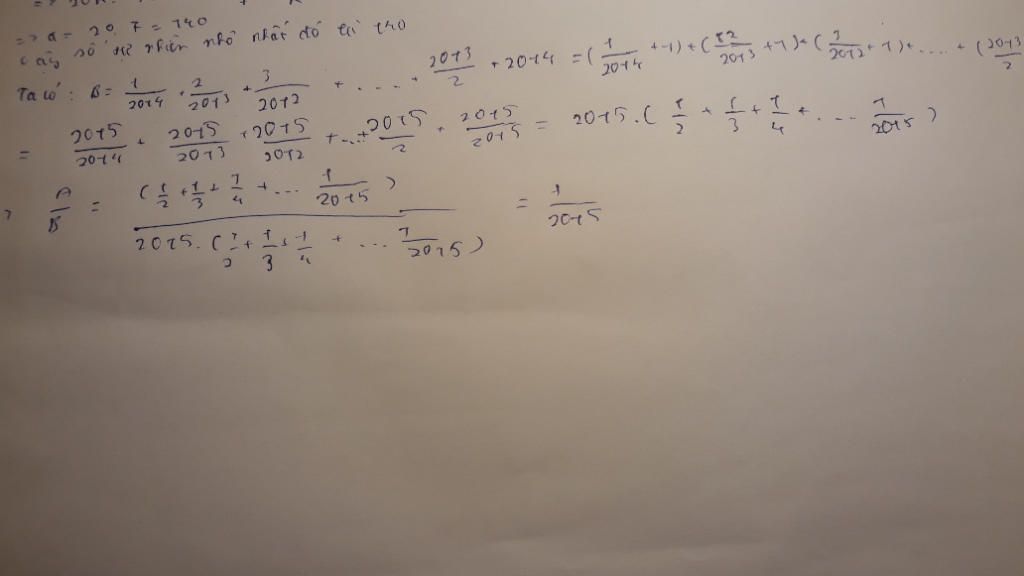 => a = 20.7 = 140
số tự nhiên nhỏ nhất đó là 140
Ta có : B = 1/2014 + 2/2013 + 3/2012 + .... + 2013/2 + 2014 = (1/2014 + 1) + (2/2013 + 1) + (3/2012 + 1) + .... + (2013/2
= 2015/2014 + 2015/2013 + 2015/2012 + ... + 2015/2 + 2015/2015 = 2015.(1/2 + 1/3 + 1/4 + ... 1/2015)
A/B = (1/2 + 1/3 + 1/4 + ... 1/2015) / 2015.(1/2 + 1/3 + 1/4 + ... 1/2015) = 1/2015